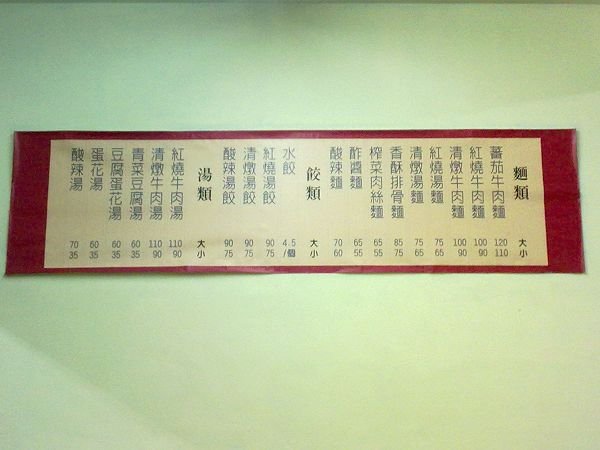 麵類 大 小
蕃茄牛肉麵 120 110
紅燒牛肉麵 100 90
清燉牛肉麵 100 90
紅燒湯麵 75 65
清燉湯麵 75 65
香酥排骨麵 85 75
榨菜肉絲麵 65 55
酢醬麵 65 55
酸辣麵 70 60
餃類 大 小
水餃 4.5 /個
紅燒湯餃 90 75
清燉湯餃 90 75
酸辣湯餃 90 75
湯類 大 小
紅燒牛肉湯 110 90
清燉牛肉湯 110 90
青菜豆腐湯 60 35
豆腐蛋花湯 60 35
蛋花湯 60 35
酸辣湯 70 35